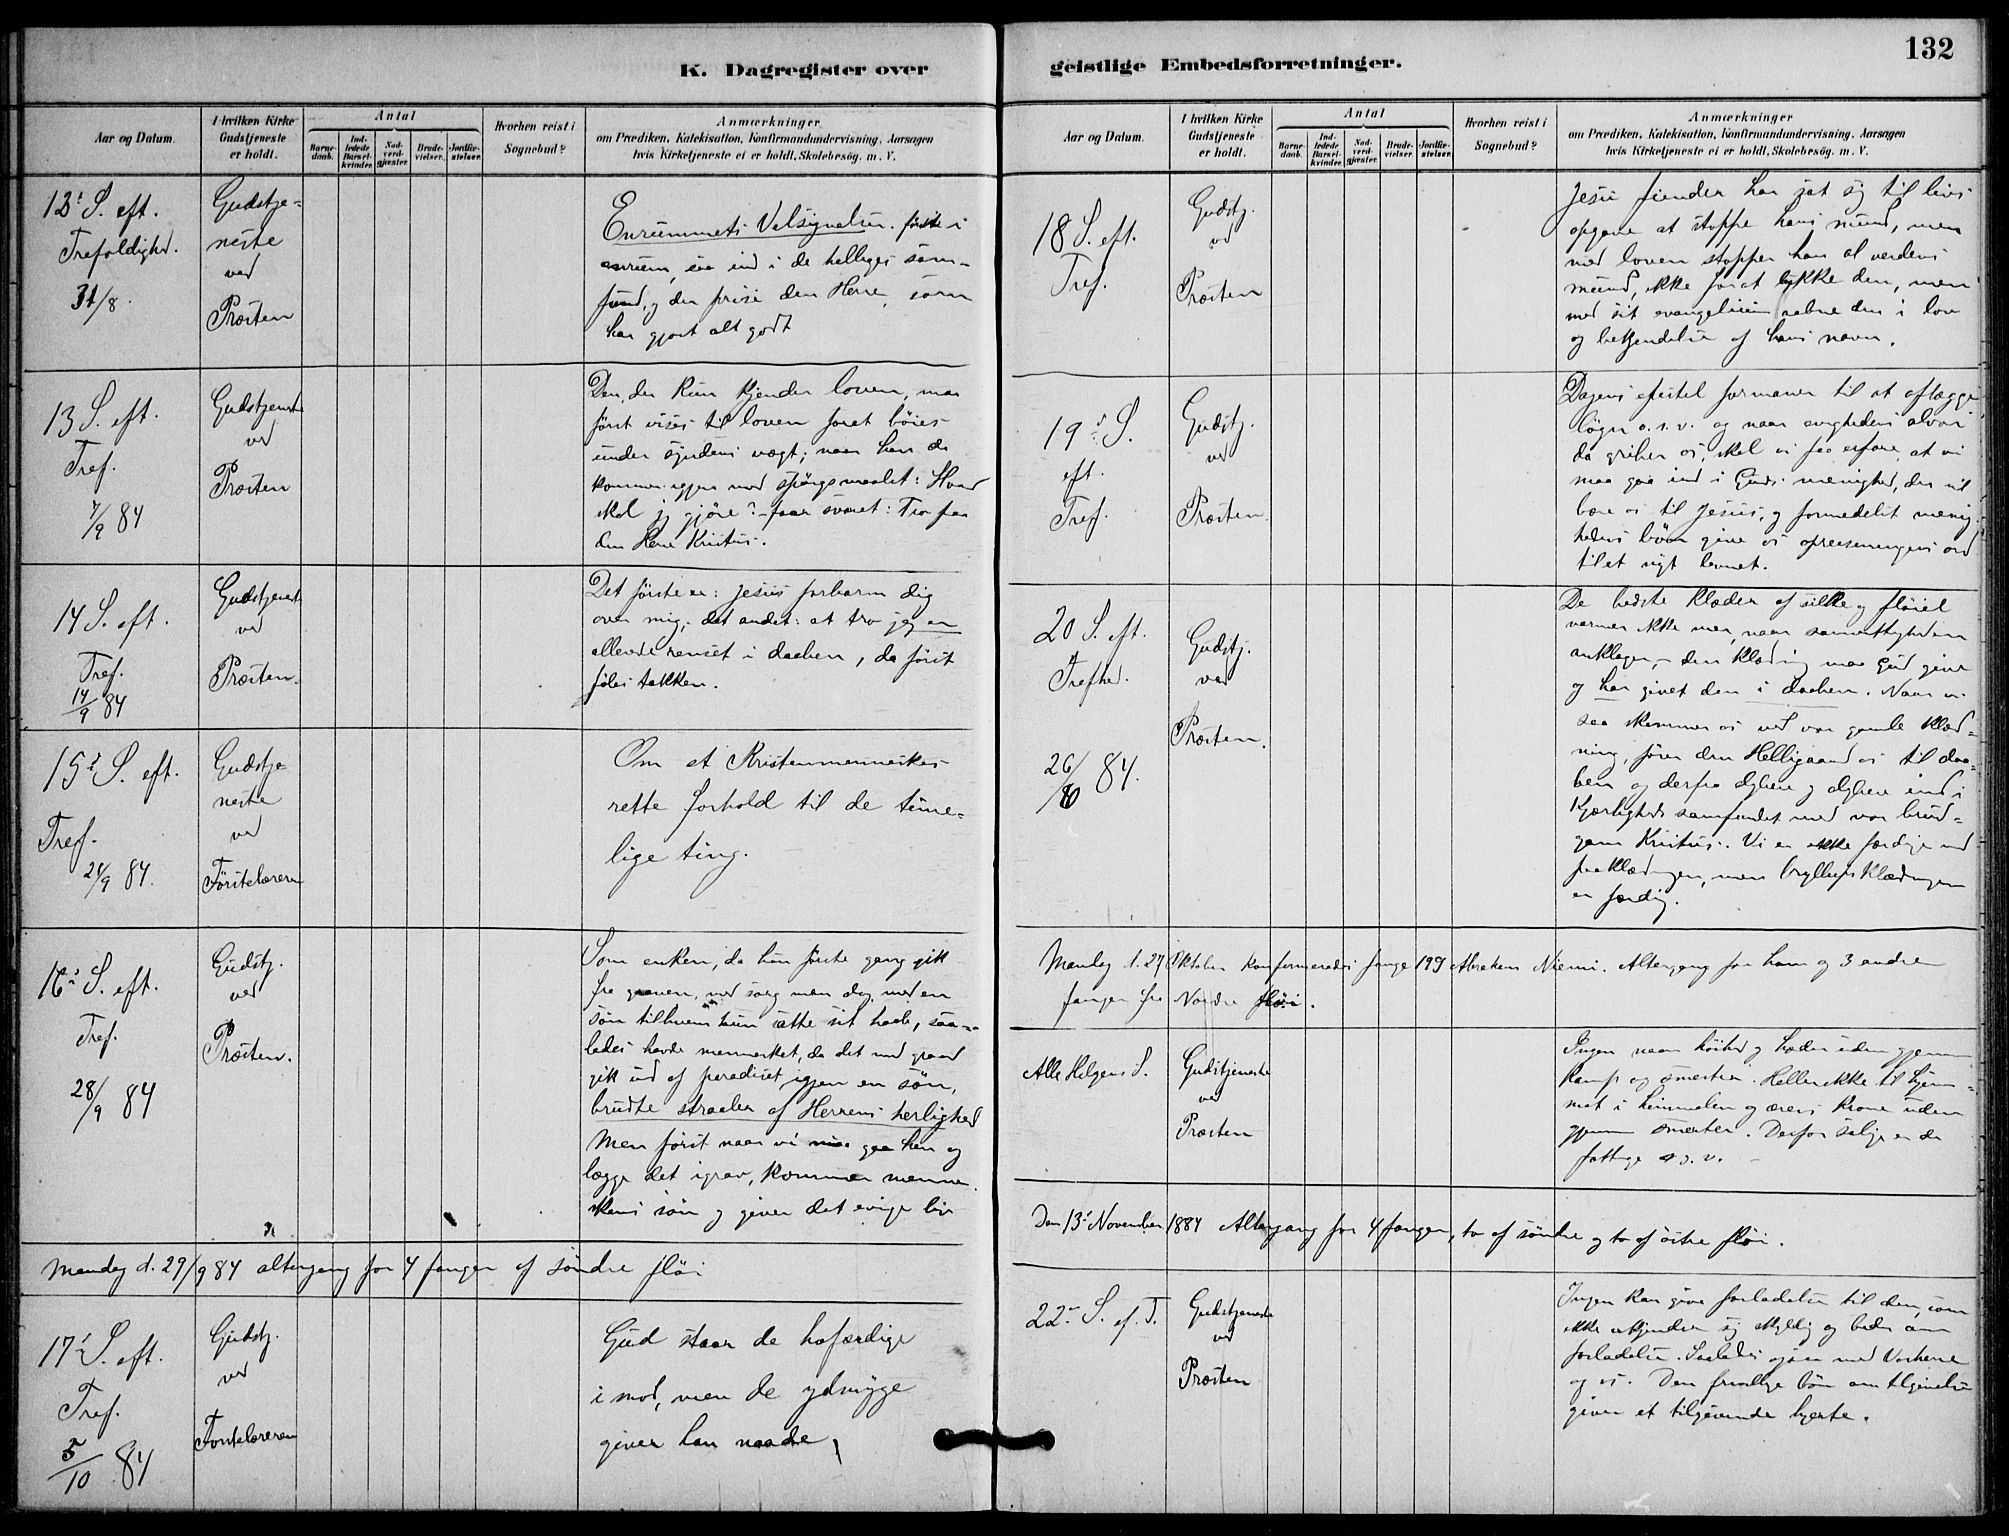 K. Dagregister over
Aar og Datum.
I hvilken Kirke
Gudstjeneste
er holdt.
Antal
Barne-
daab.
Ind-
ledede
Barsel-
kvinder.
Nad-
verd-
gjæster.
Brude-
vielser.
Jordfæ-
stelser.
Hvorhen reist i
Sognebud?
Anmærkninger
om Prædiken, Katekisation, Konfirmandundervisning, Aarsagen
hvis Kirketjeneste ei er holdt, Skolebesøg. m. V.
12' S. eft.
Trefoldighed.
31/8.
Gudstje-
neste
ved
Præsten
Enrummets Velsignelse. først i
enrum, saa ind i de helliges sam-
fund, og der prise den Herre, som
har gjort alt godt
13 S. eft.
Tref.
7/9 84
Gudstjeneste
ved
Præsten
Den, der kun kjender loven, maa
først vises til loven foråt bøies
under syndens vægt; naar han da
kommer igjen med spörgsmaalet: Hvad
skal jeg gjöre? - faar svaret: Tro paa
den Herre Kristus.
14 S. eft.
Tref.
14/9 84
Gudstjeneste
ved
Præsten.
Det første er: Jesus forbarm dig
over mig, det andet: at tro jeg er
allerede renset i daaben, da först
föles takken.
15' S. eft.
Tref.
21/9 84.
Gudstje-
neste
ved
Förstelæreren
Om et Kristenmenneskes
rette forhold til de time-
lige ting.
16' S. eft.
Tref.
28/9 84
Gudstj.
ved
Præsten.
Som enken, da hun første gang gik
fra graven, med sorg men dog med en
søn til hvem hun satte sit haab, saa-
ledes havde mennesket, da det med graad
gik ud af paradiset, igjen en søn,
brudte straaler af Herrens herlighed
Men först naar vi maa gaa hen og
lægge det i grav, kommer menne
skens søn og giver det evige liv
Mandag d. 29/9 84 altergang for 4 fanger af söndre flöi
17' S. eft.
Tref.
5/10 84
Gudstj.
ved
Förstelæreren
Gud staar de hofærdige
i mod, men de ydmyge
giver han naade,
geistlige Embedsforretninger.
132
Aar og Datum.
I hvilken Kirke
Gudstjeneste
er holdt.
Antal
Barne-
daab.
Ind-
ledede
Barsel-
kvinder.
Nad-
verd-
gjæster.
Brude-
vielser.
Jordfæ-
stelser.
Hvorhen reist i
Sognebud?
Anmærkninger
om Prædiken, Katekisation, Konfirmandundervisning, Aarsagen
hvis Kirketjeneste ei er holdt, Skolebesøg. m. V.
18 S. eft.
Tref.
Gudstj.
ved
Præsten
Jesu fiender har sat sig til livs
opgave at stoppe hans mund, men
med loven stopper han al verdens
mund, ikke foråt lykke den, men
med sit evangelium aabne den i lov
og bekjendelse af hans navn.
19' S.
eft.
Tref.
Gudstj.
ved
Præsten.
Dagens epistel formaner til at aflægge
lögn o.s.v. og naar evighedens alvor
da griber os, skal vi faa erfare at vi
maa gaa ind i Guds menighed, der vil
bære os til Jesus, og formedelst menig-
hedens bön give os opreisningens ord
til et nyt levnet.
20 S. eft.
Trefhed.
26/10 84.
Gudstj.
ved
Præsten.
De bedste klæder af silke og flöiel
varmer ikke mer, naar samvittigheden
anklager, - den klædning maa Gud give
og har givet den i daaben. Naar vi
saa skammer os ved vor gamle klæd-
ning, förer den Helligaand os til daa-
ben og derfra dybere og dybere ind i
kjærligheds samfundet med vor brud-
gom Kristus. Vi er ikke færdige med
paaklædningen, men bryllupsklædningen
er færdig.
Mandag d. 27 Oktober konfirmeredes fange 199 Abraham Niemi. Altergang for ham og 3 andre
fanger fra Nordre flöi.
Alle Helgens S.
Gudstjeneste
ved
Præsten
Ingen naar höihed og hæder uden gjennem
kamp og smerter. Heller ikke til hjem-
met i himmelen og ærens krone uden
gjennem smerter. Derfor salige er de
fattige o.s.v. -
Den 13' November 1884 Altergang for 4 fanger, to af söndre og to af östre flöi.
22' S. ef. T.
Gudstjeneste
ved
Præsten
Ingen kan give forladelse til den, som
ikke erkjender sig skyldig og beder om
forladelse. Saaledes ogsaa med Vorherre
og os. Den frivillige bön om tilgivelse
giver et tilgivende hjerte.